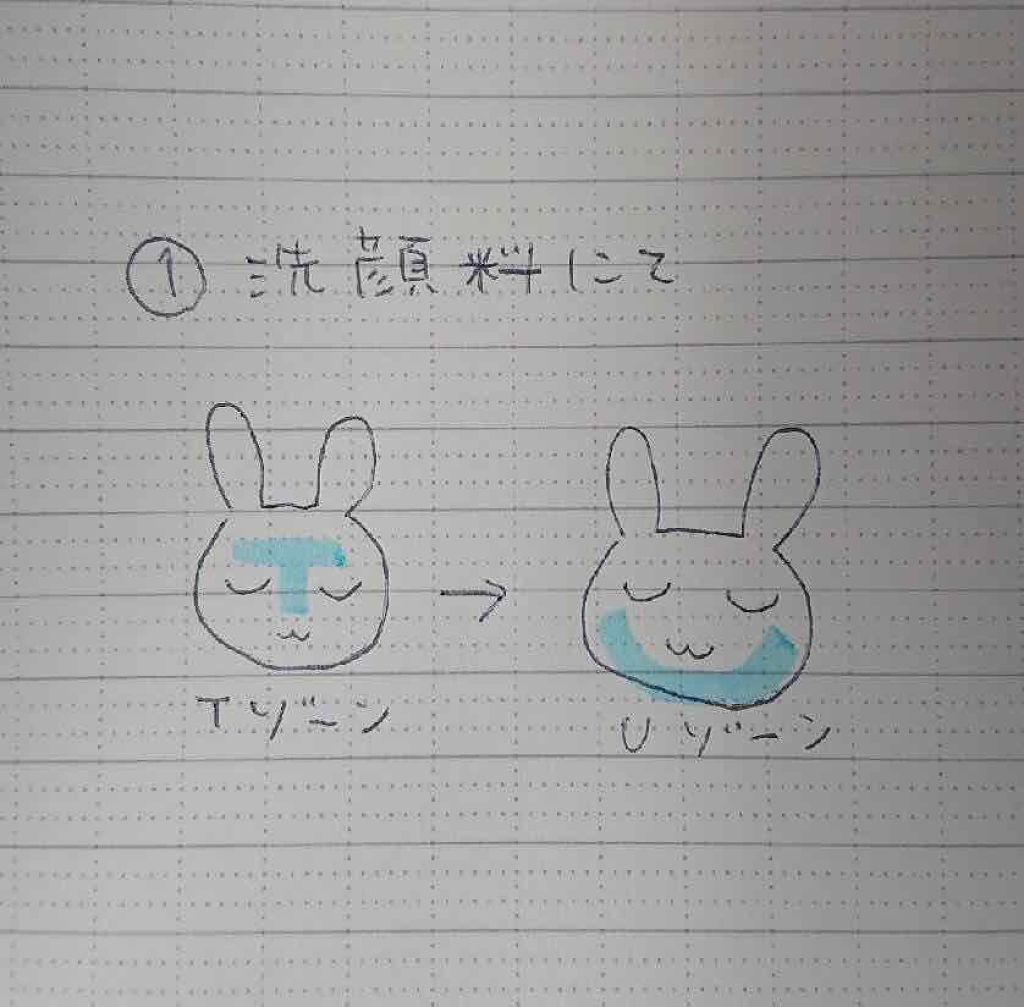 ① 洗顔料にて
Tゾーン → Uゾーン